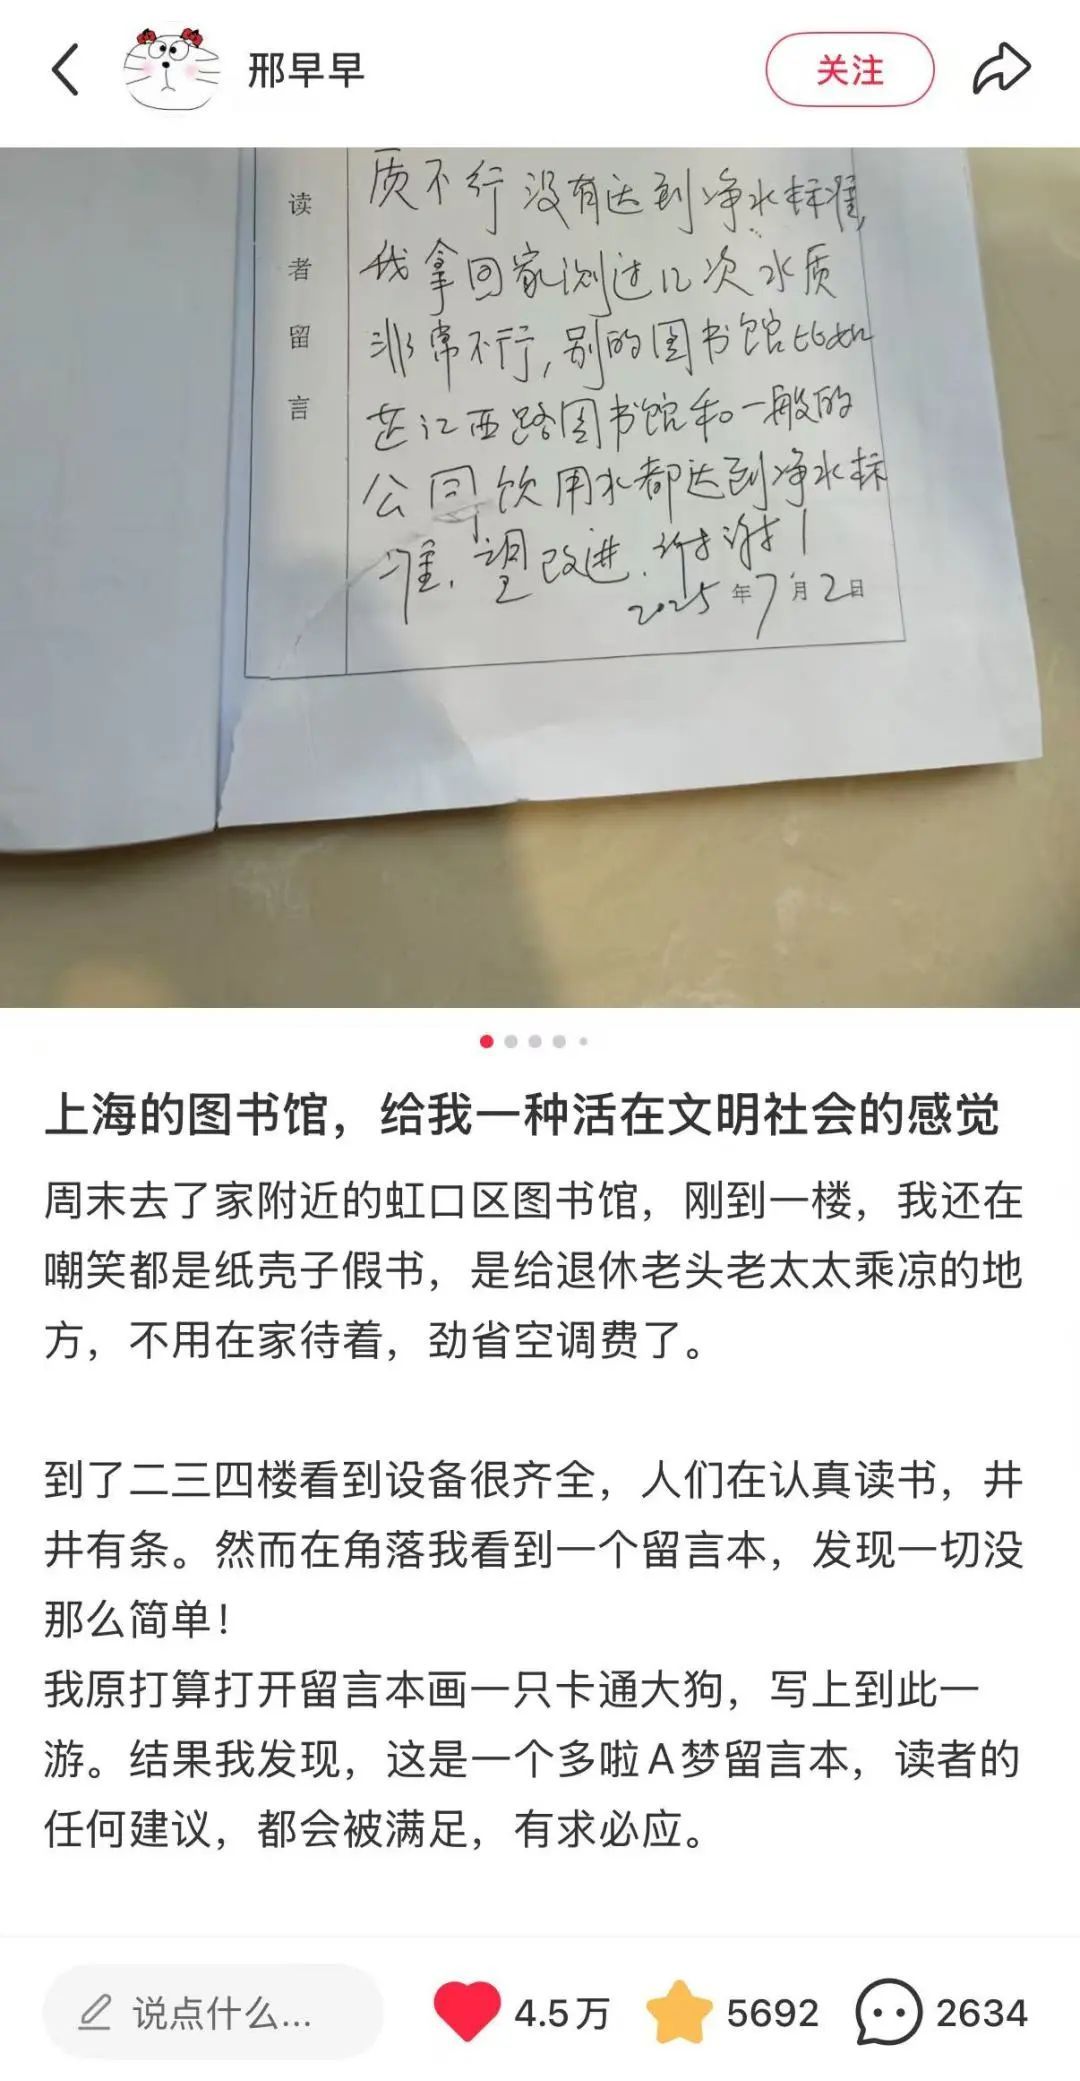 邢早早
关注
读者留言
质不行没有达到净水标准,
我拿回家测过几次水质
非常不行,别的图书馆比如
芷江西路图书馆和一般的
公司饮用水都达到净水标
准.望改进.谢谢!
2025年7月2日
上海的图书馆，给我一种活在文明社会的感觉
周末去了家附近的虹口区图书馆，刚到一楼，我还在
嘲笑都是纸壳子假书，是给退休老头老太太乘凉的地
方，不用在家待着，劲省空调费了。
到了二三四楼看到设备很齐全，人们在认真读书，井
井有条。然而在角落我看到一个留言本，发现一切没
那么简单！
我原打算打开留言本画一只卡通大狗，写上到此一
游。结果我发现，这是一个多啦A梦留言本，读者的
任何建议，都会被满足，有求必应。
说点什么...
4.5万
5692
2634